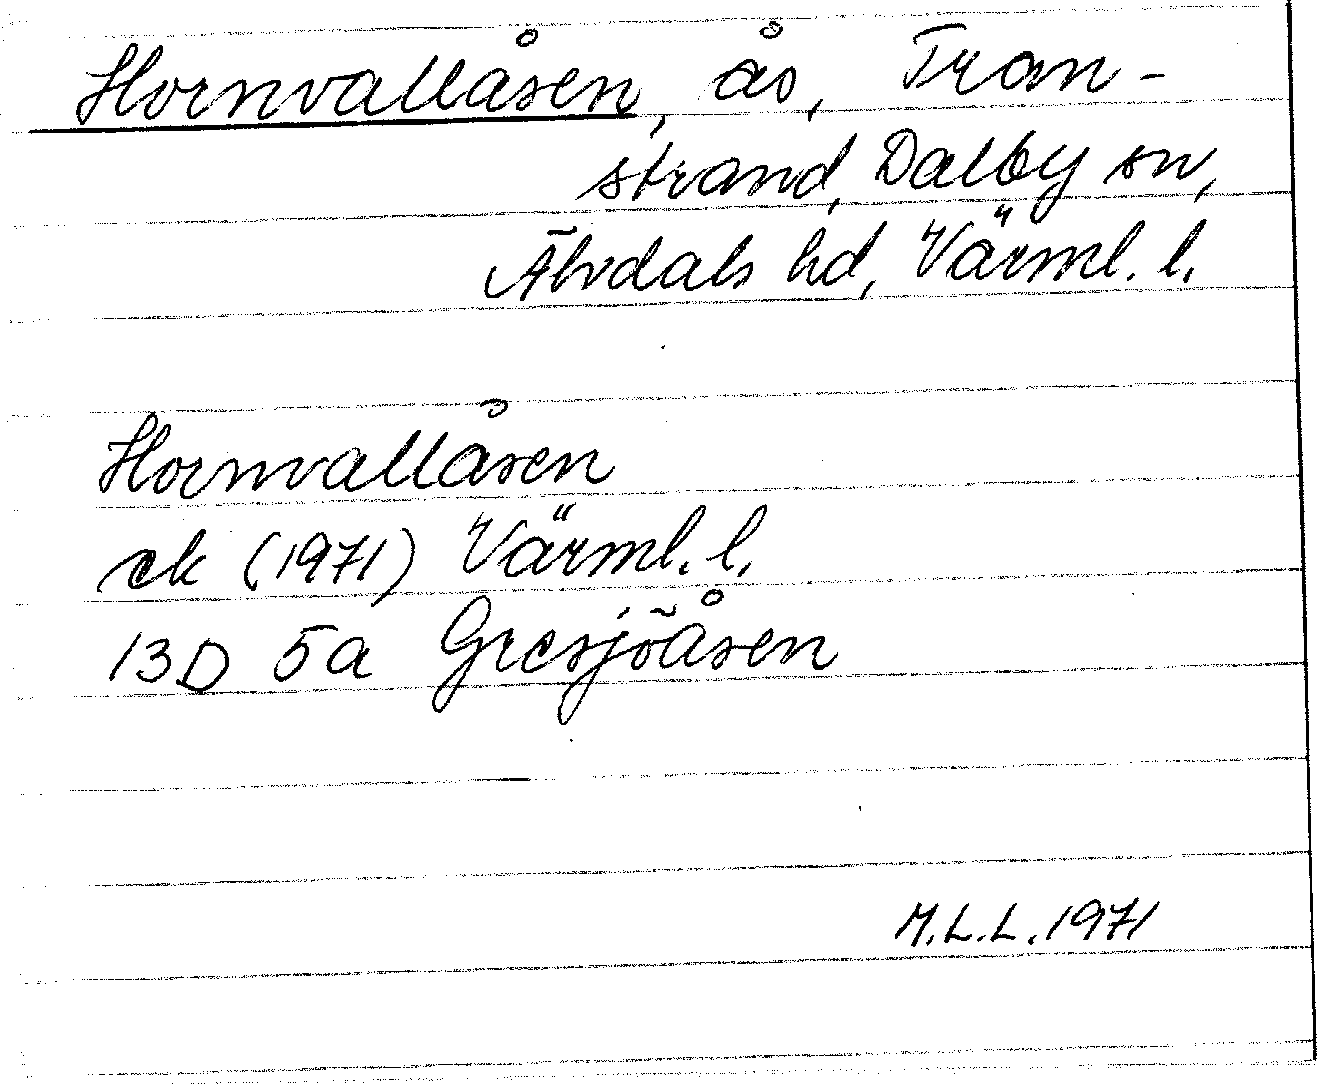 Hornvallåsen, ås, Tran-
strand, Dalby sn,
Älvdals hd, Värml. l.
Hornvallåsen
ek (1971) Värml. l.
13D 5a Gresjöåsen
M.L.L. 1971